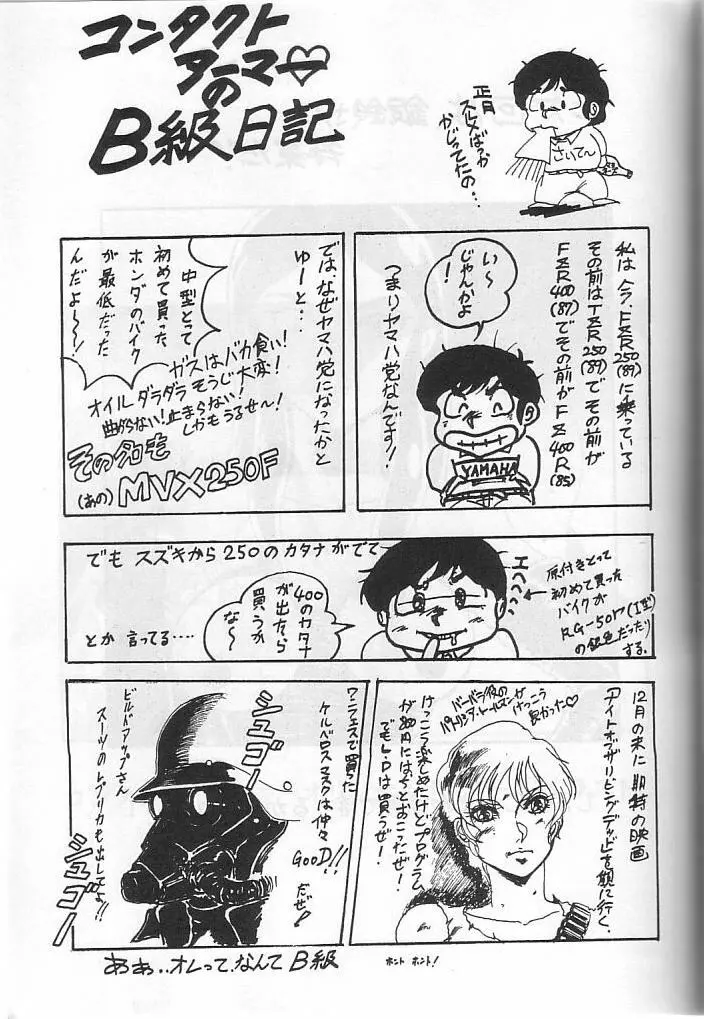 コンタクト
アーマー
の
B級日記
正月
スルメばっか
かじってたの…
さいてー
私は今、FZR250(89)に乗っている
その前はTZR250(89)でその前が
FZR400(87)でその前がFZ400R(85)
い〜
じゃんかよ
!
つまりヤマハ党なんです!
YAMAHA
では、なぜヤマハ党になったかと
ゆーと…
中型とって
初めて買った
ホンダのバイク
が最低だった
んだよ〜〜!
ガスはバカ食い!
オイルダラダラそうじ大変!
曲がらない!止まらない!
しかもうるせ〜!
その名も
(あの)MVX250F
でもスズキから250のカタナがでて
400のカタナ
が出たら
買うか
な〜
とか言ってる….
エヘヘヘ
原付きとって
初めて買った
バイクが
RG-50Γ(I型)
の銀色だったり
する。
12月の末に期待の映画
「ナイトオブザリビングデッド」を観に行く、
バーバラ役の
パトリシア・トールマンが
けっこう
良かった♡
けっこう楽しめたけどプログラム
が800円にはちとおこったぜ!
でもL・Dは買うぜ!
ワンフェスで買った
ケルベロスマスクは仲々
GooD!!
だぜ!
シュゴー
ビルドアップさん
スーツのレプリカも出してよ!!
シュゴー
あぁ..オレって、なんてB級
ホント ホント!